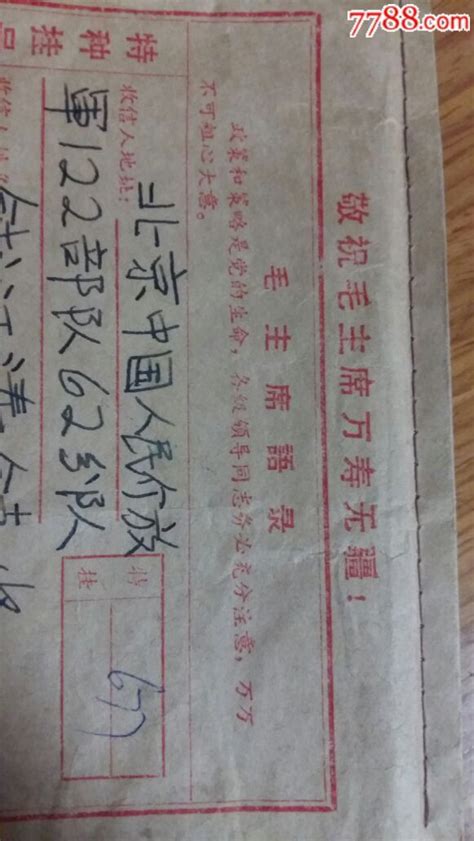 7788.com
敬祝毛主席万寿无疆！
毛主席語录
政策和策略是党的生命，各级领导同志务必充分注意，万万
不可粗心大意。
特种挂号
收信人地址：北京中国人民介放
军122部队62分队
特挂
677